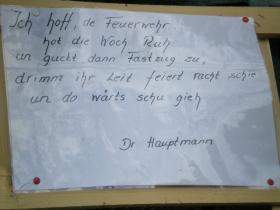 Ich hoff, de Feuerwehr
hot die Woch Ruh
un guckt dann Fastzug zu,
drimm ihr Leit feiert racht schie
un do wärts schu gieh
Dr Hauptmann